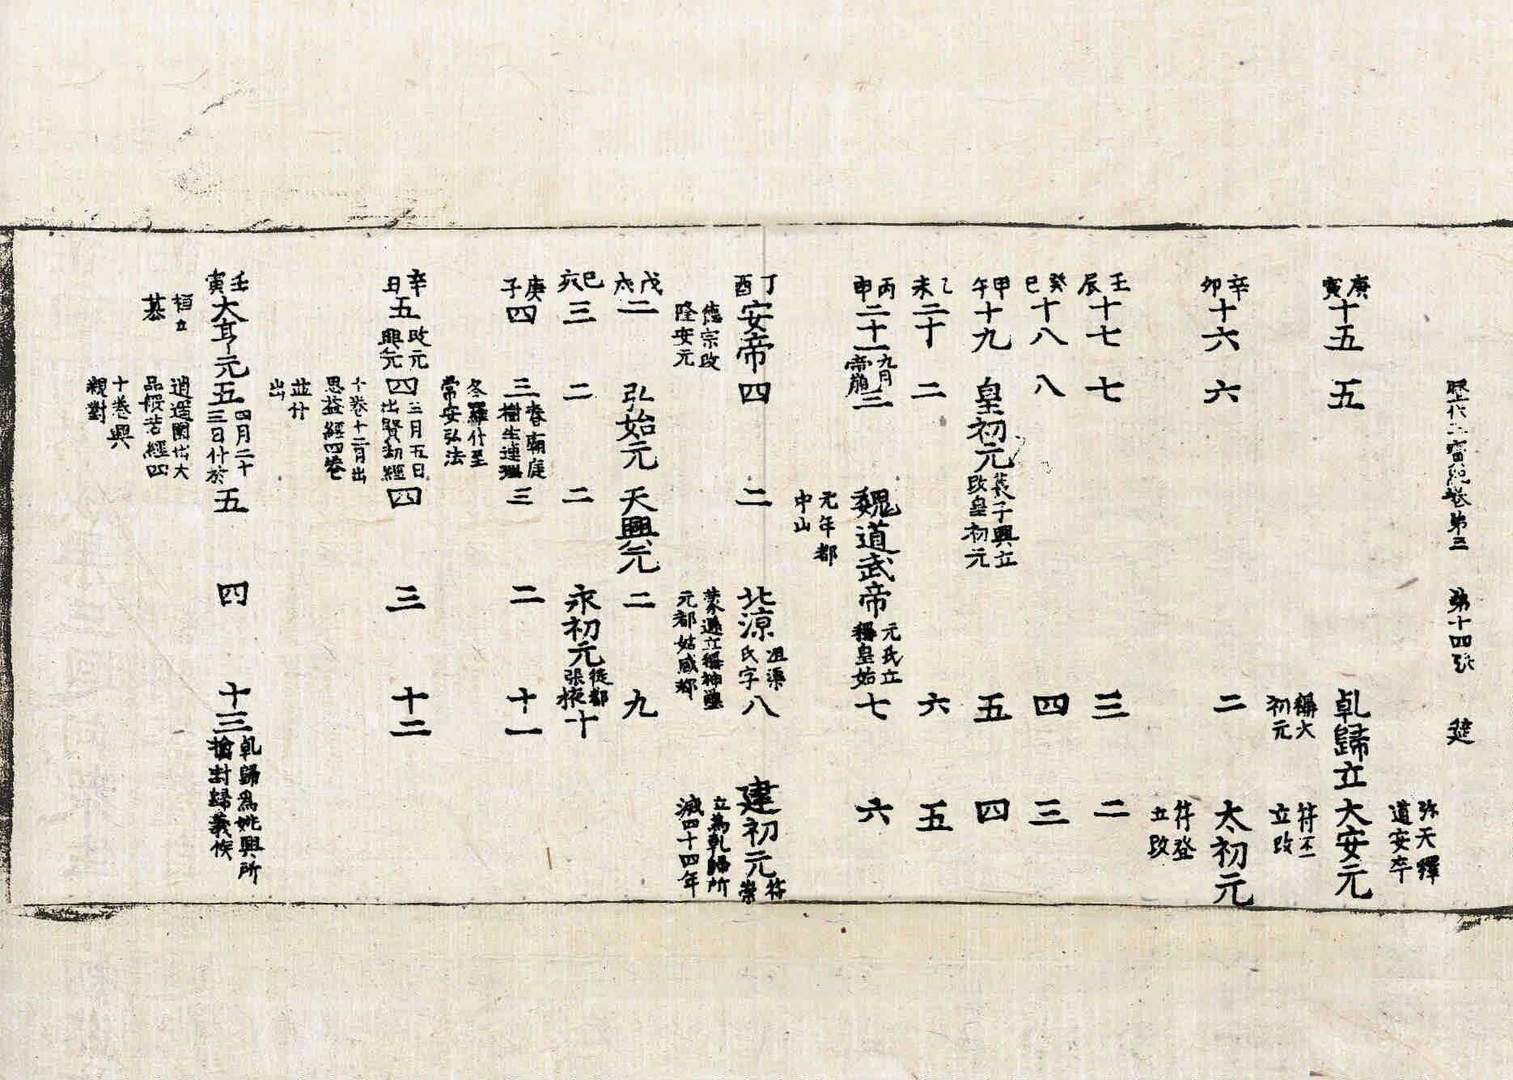 歷代三寶紀卷第三 第十四張 莚
弥天釋
道安卒
庚寅 十五 五 乹歸立 大安元
稱大初元 符丕立改
辛卯 十六 六 二 太初元
符登立改
壬辰 十七 七 三 二
癸巳 十八 八 四 三
甲午 十九 皇初元 萇子興立改皇初元 五 四
乙未 二十 二 六 五
丙申 二十一 九月帝崩 三 魏道武帝 元氏立稱皇始 七 六
元年都中山
丁酉 安帝 四 二 北涼 沮渠氏字 八 建初元 符崇
德宗改隆安元 蒙遜立稱神璽元都姑臧 立為乹歸所滅四十四年
戊戌 二 弘始元 天興元 二 九
己亥 三 二 二 永初元 徙都張掖 十
庚子 四 三 春廟庭樹生連理 三 二 十一
冬羅什至常安弘法
辛丑 五 改元興元 四 三月五日出賢劫經 四 三 十二
十卷十二月出思益經四卷
並什出
壬寅 大亨元 五 四月二十三日什於 五 四 十三 乹歸為姚興所搶封歸義侯
桓立 逍遥園出大品般若經四
十卷興親對